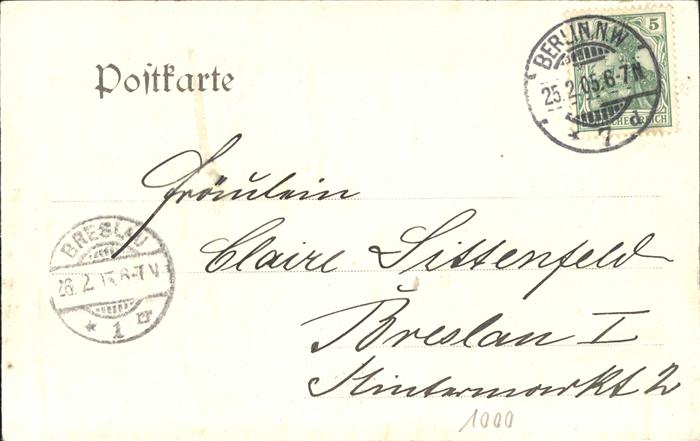 Postkarte
5
BERLIN, N.W
25.2.05.6-7N.
* 7 d
DEUTSCHES REICH
Fräulein
Claire Sittenfeld
Breslau I
Hintermarkt 2
BRESLAU
26.2.05.6-7V
* 1 rr
1000